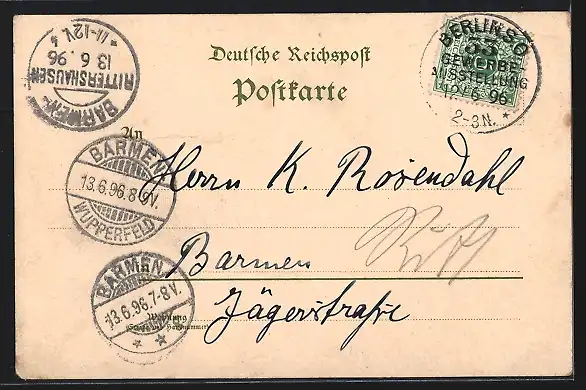 Deutsche Reichspost
Postkarte
BERLIN SO
33
GEWERBE
AUSSTELLUNG
12/6 96
2-3N. *
BARMEN-
RITTERSHAUSEN
13 6 96
* 11-12V.
An
BARMEN
13.6.96.8-9V.
WUPPERFELD
Herrn K. Rosendahl
in
Barmen
BARMEN
13.6.96.7-8V.
* *
Jägerstraße
Wohnung
(Straße und Hausnummer)